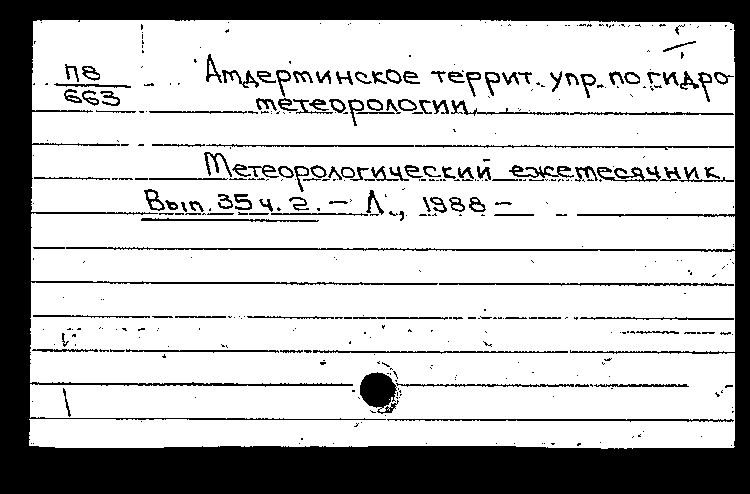 П8
663
Амдерминское террит. упр. по гидро
метеорологии.
Метеорологический ежемесячник.
Вып. 35 ч. 2. – Л., 1988 –